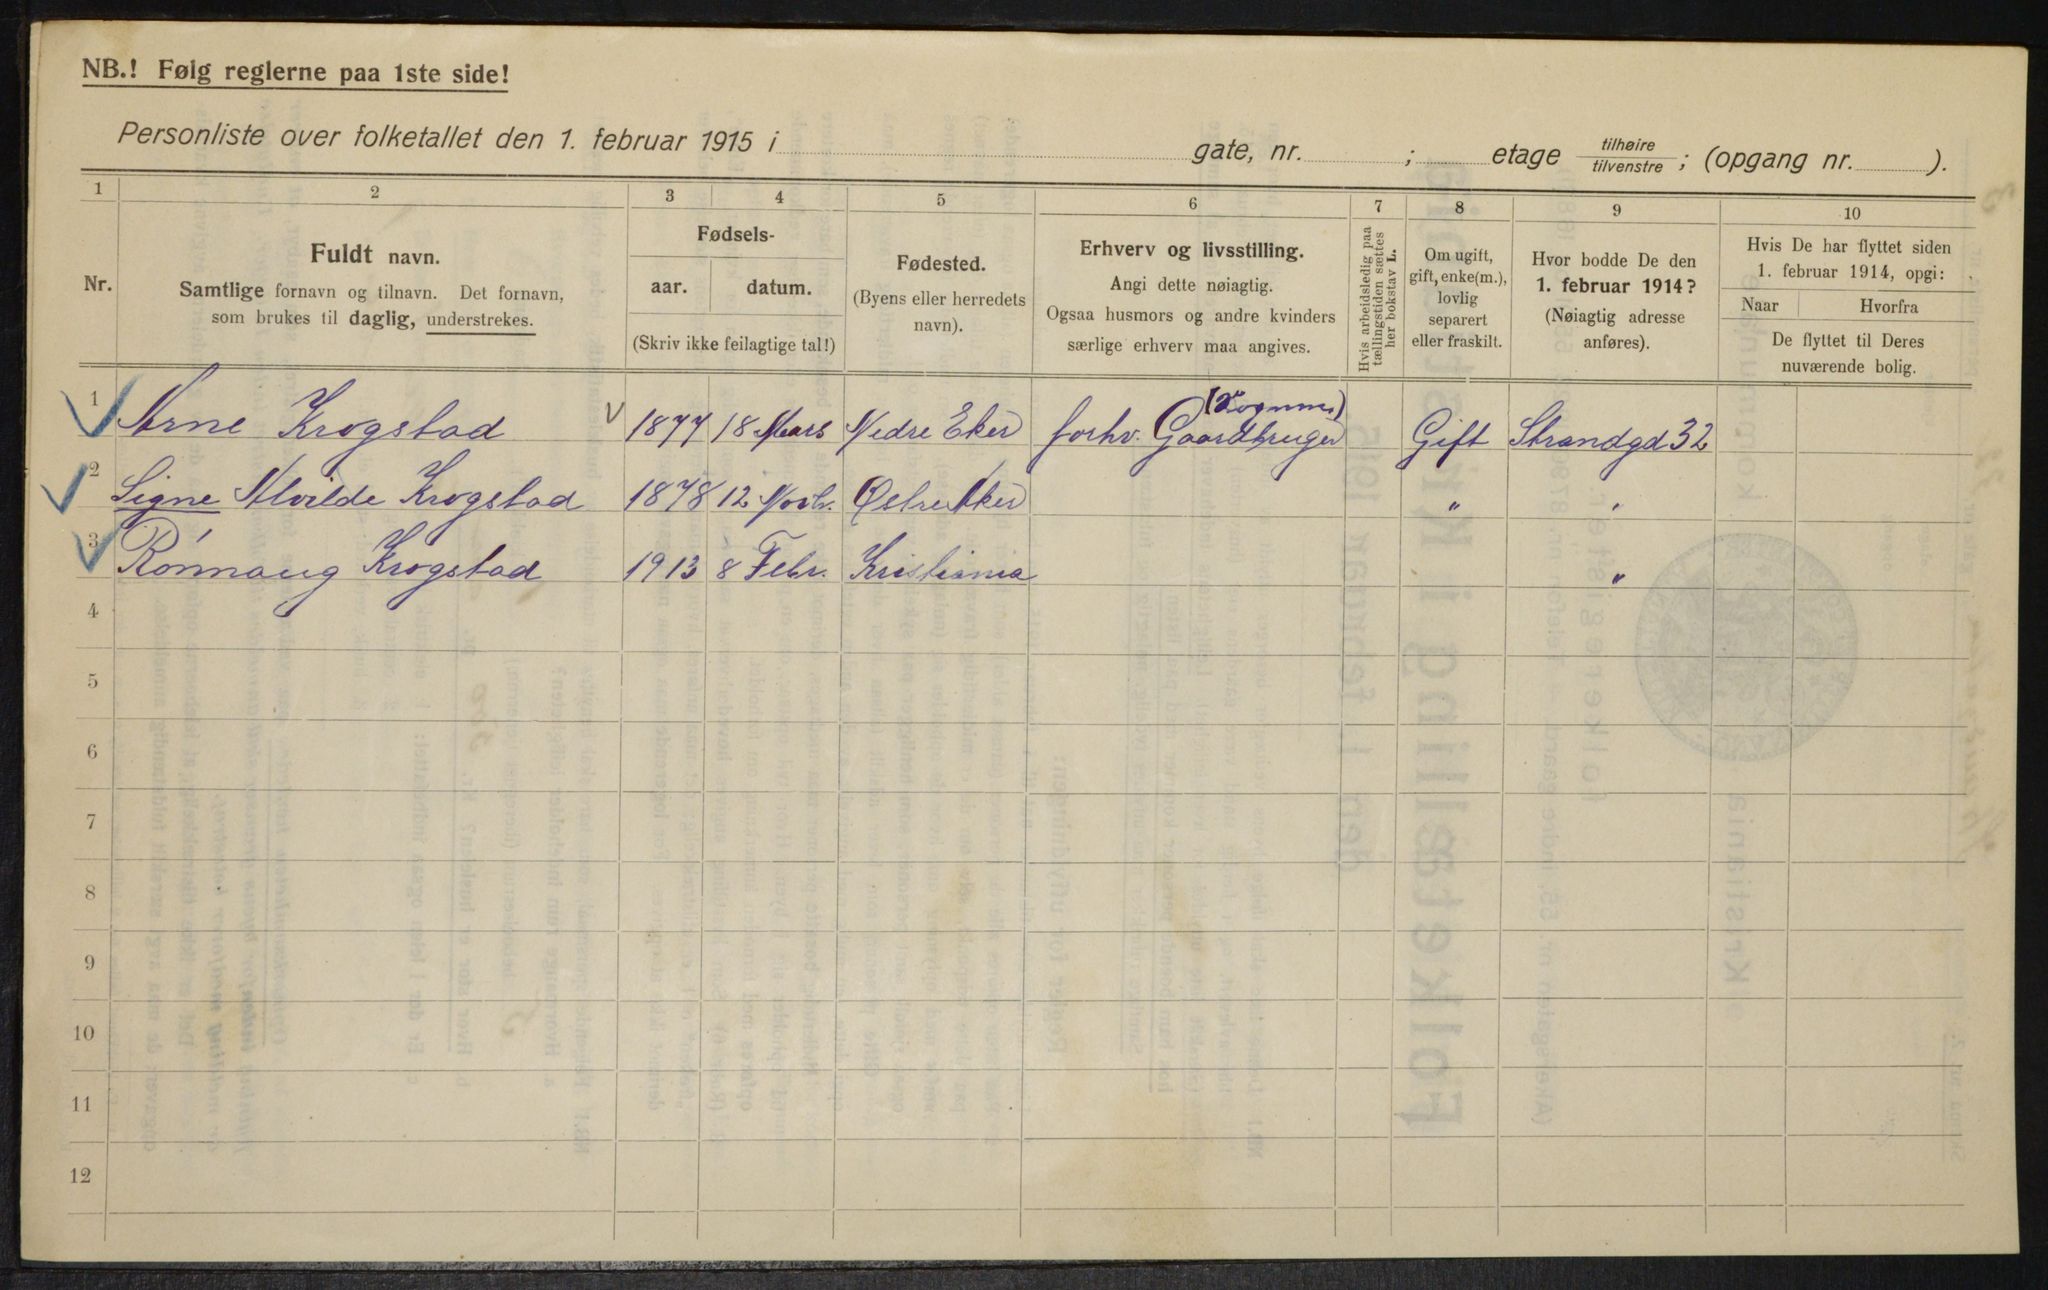 NB.! Følg reglerne paa 1ste side!
Personliste over folketallet den 1. februar 1915 i gate, nr. ; etage tilhøire tilvenstre ; (opgang nr. ).
1 2 3 4 5 6 7 8 9 10
Nr.
Fuldt navn.
Samtlige fornavn og tilnavn. Det fornavn,
som brukes til daglig, understrekes.
Fødsels-
aar. datum.
(Skriv ikke feilagtige tal!)
Fødested.
(Byens eller herredets
navn).
Erhverv og livsstilling.
Angi dette nøiagtig.
Ogsaa husmors og andre kvinders
særlige erhverv maa angives.
Hvis arbeidsledig paa
tællingstiden sættes
her bokstav L.
Om ugift,
gift, enke(m.),
lovlig
separert
eller fraskilt.
Hvor bodde De den
1. februar 1914?
(Nøiagtig adresse
anføres).
Hvis De har flyttet siden
1. februar 1914, opgi:
Naar Hvorfra
De flyttet til Deres
nuværende bolig.
1 Arne Krogstad 1877 18 Mars Nedre Eker forhv. Gaardbruger Gift Strandgd 32
2 Signe Alvilde Krogstad 1878 12 Novbr. Østre Aker " "
3 Rønnaug Krogstad 1913 8 Febr. Kristiania "
4
5
6
7
8
9
10
11
12